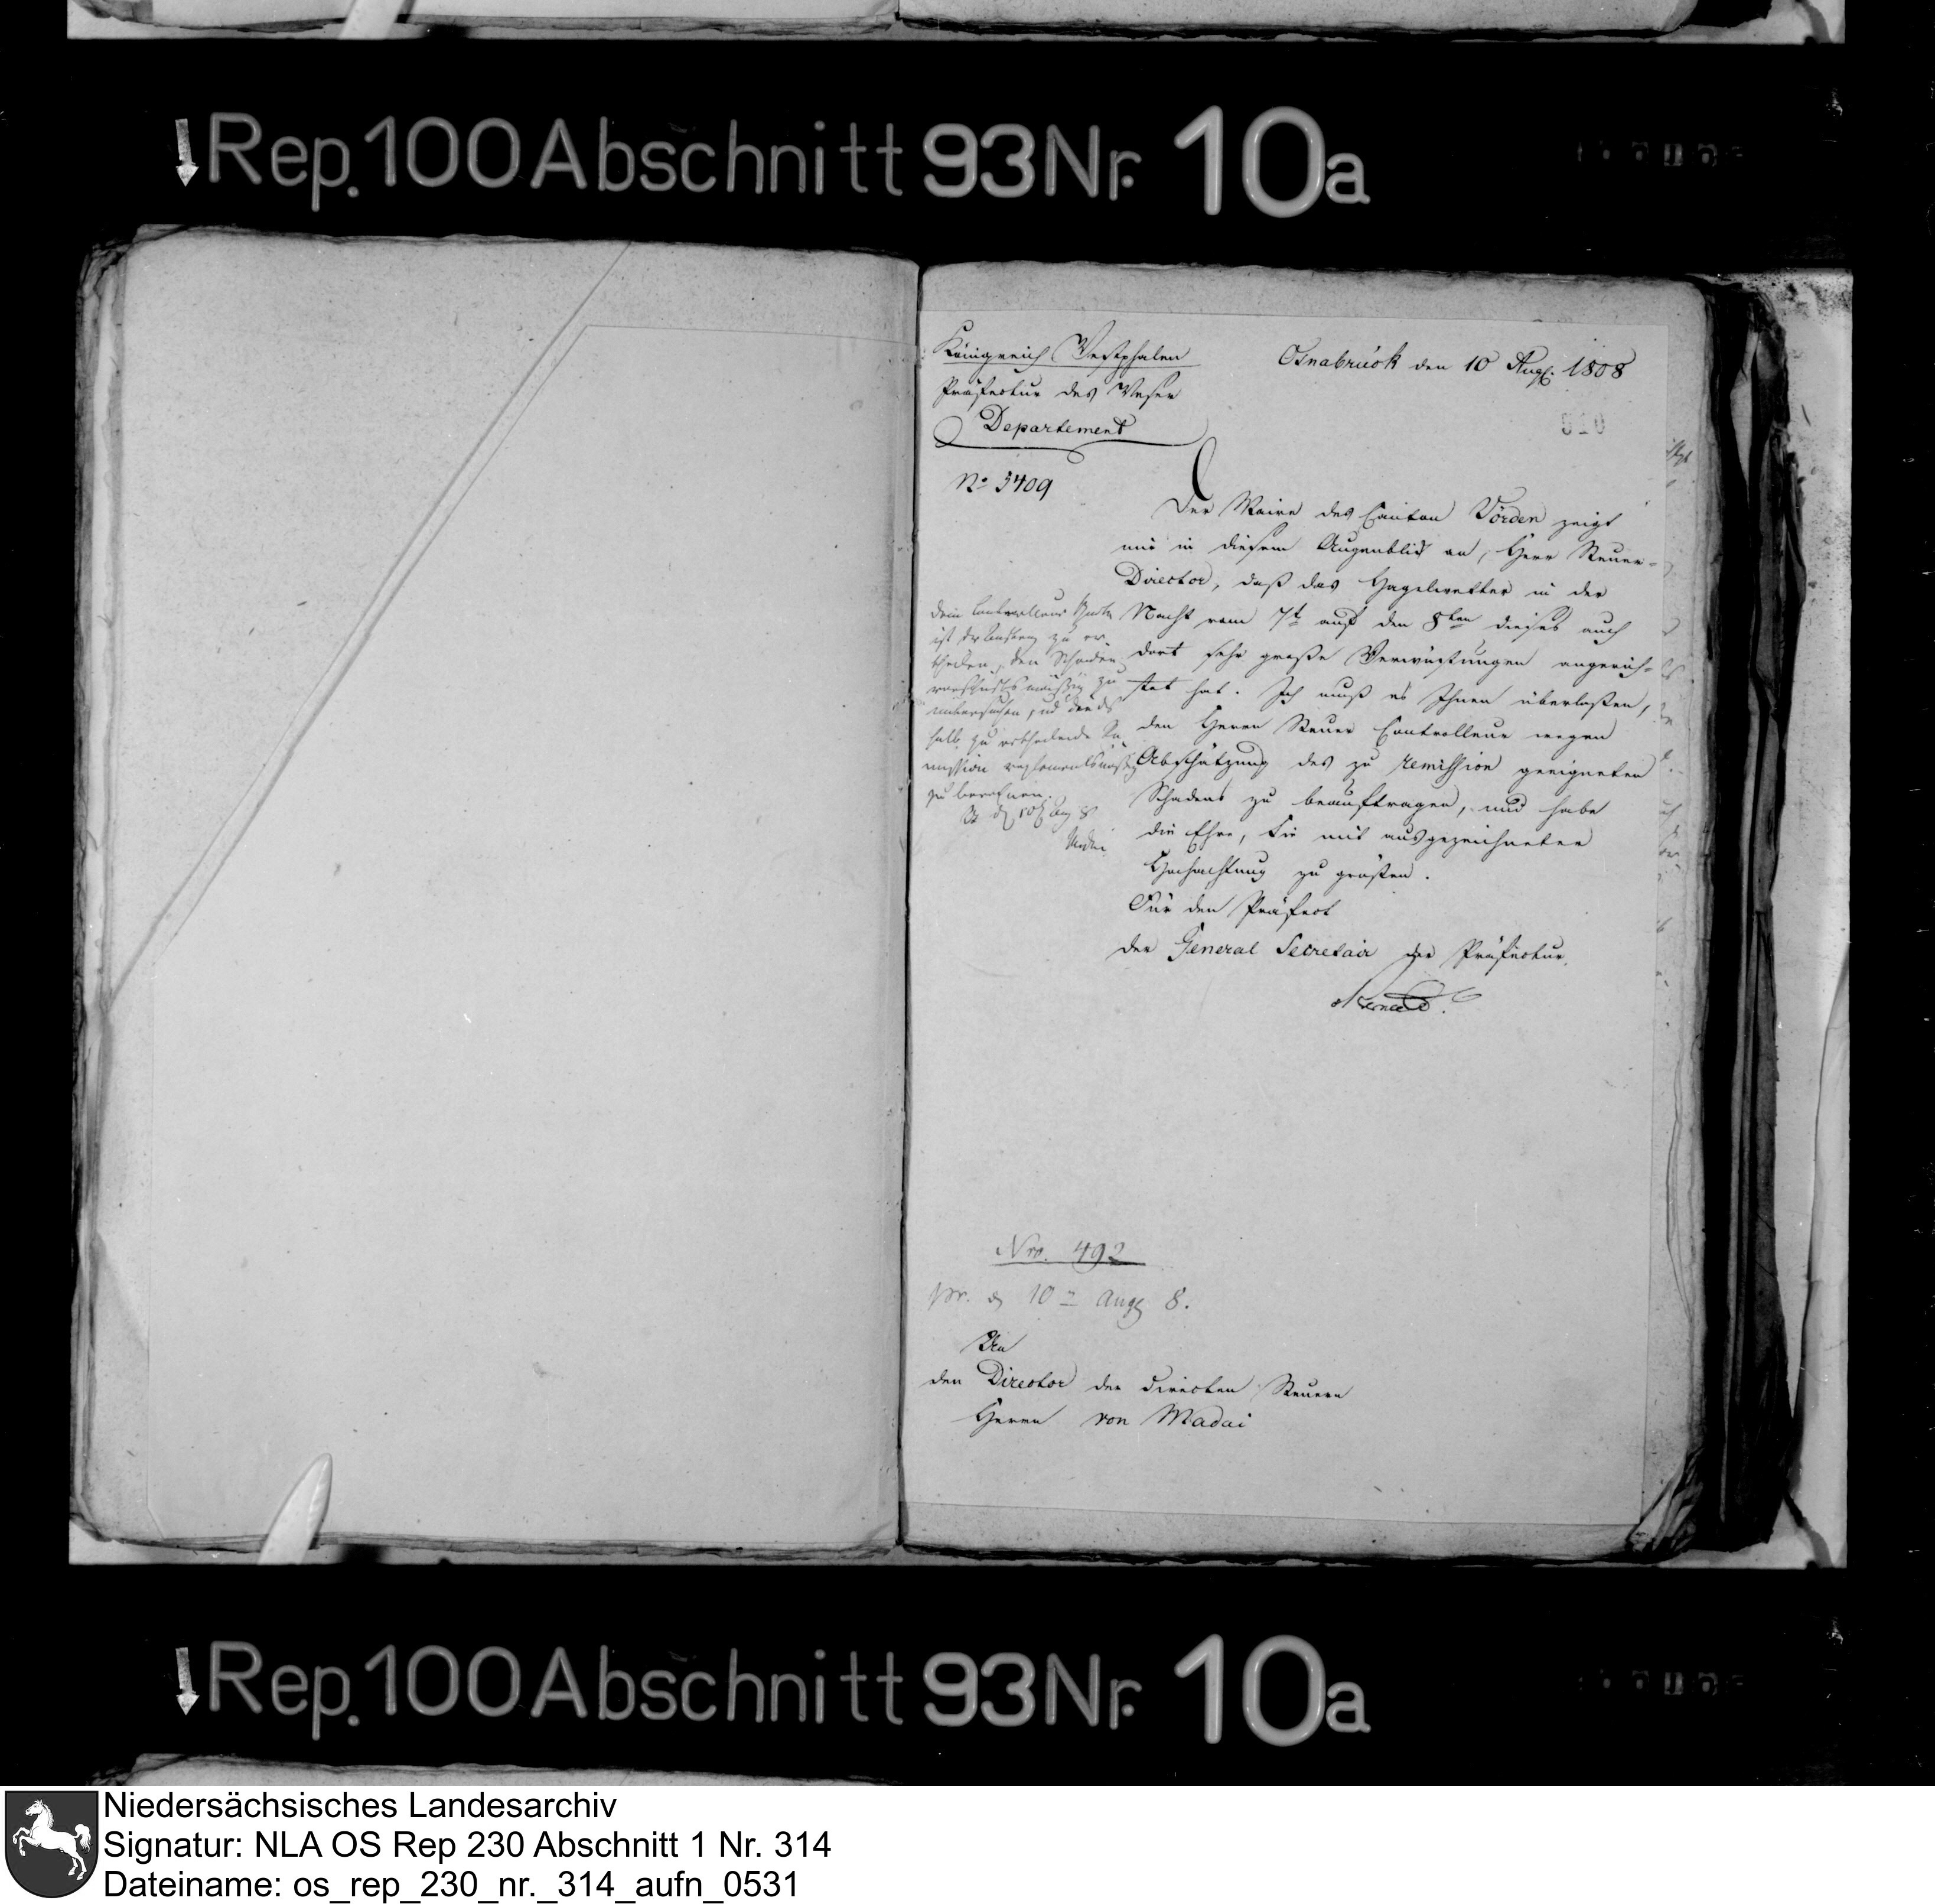 Rep. 100 Abschnitt 93 Nr. 10a
Königreich Westphalen
Präfectur des Weser
Departement
Osnabrück den 10 Aug. 1808
No 5409
Der Maire des Canton Vörden zeigt
mir in diesem Augenblick an, Herr Steuer-
Director, daß das Hagelwetter in der
Nacht vom 7t auf den 8ten dieses auch
dort sehr große Verwüstungen angerich-
tet hat. Ich muß es Ihnen überlaßen,
den Herrn Steuer Controlleur wegen
Abschätzung des zu remission geeigneten
Schadens zu beauftragen, und habe
die Ehre, Sie mit ausgezeichneter
Hochachtung zu grüßen.
Für den Präfect
der General Secretair der Präfectur
dem Controlleur
ist der Auftrag zu er-
theilen, den Schaden
vorschriftsmäßig zu
untersuchen, und des
halb zu ertheilende Re
mission reglementsmäßig
zu berechnen.
d 10 Aug 8
Madai
Nro. 492
pr. d 10 Aug 8.
An
den Director der directen Steuern
Herrn von Madai
Rep. 100 Abschnitt 93 Nr. 10a
Niedersächsisches Landesarchiv
Signatur: NLA OS Rep 230 Abschnitt 1 Nr. 314
Dateiname: os_rep_230_nr._314_aufn_0531